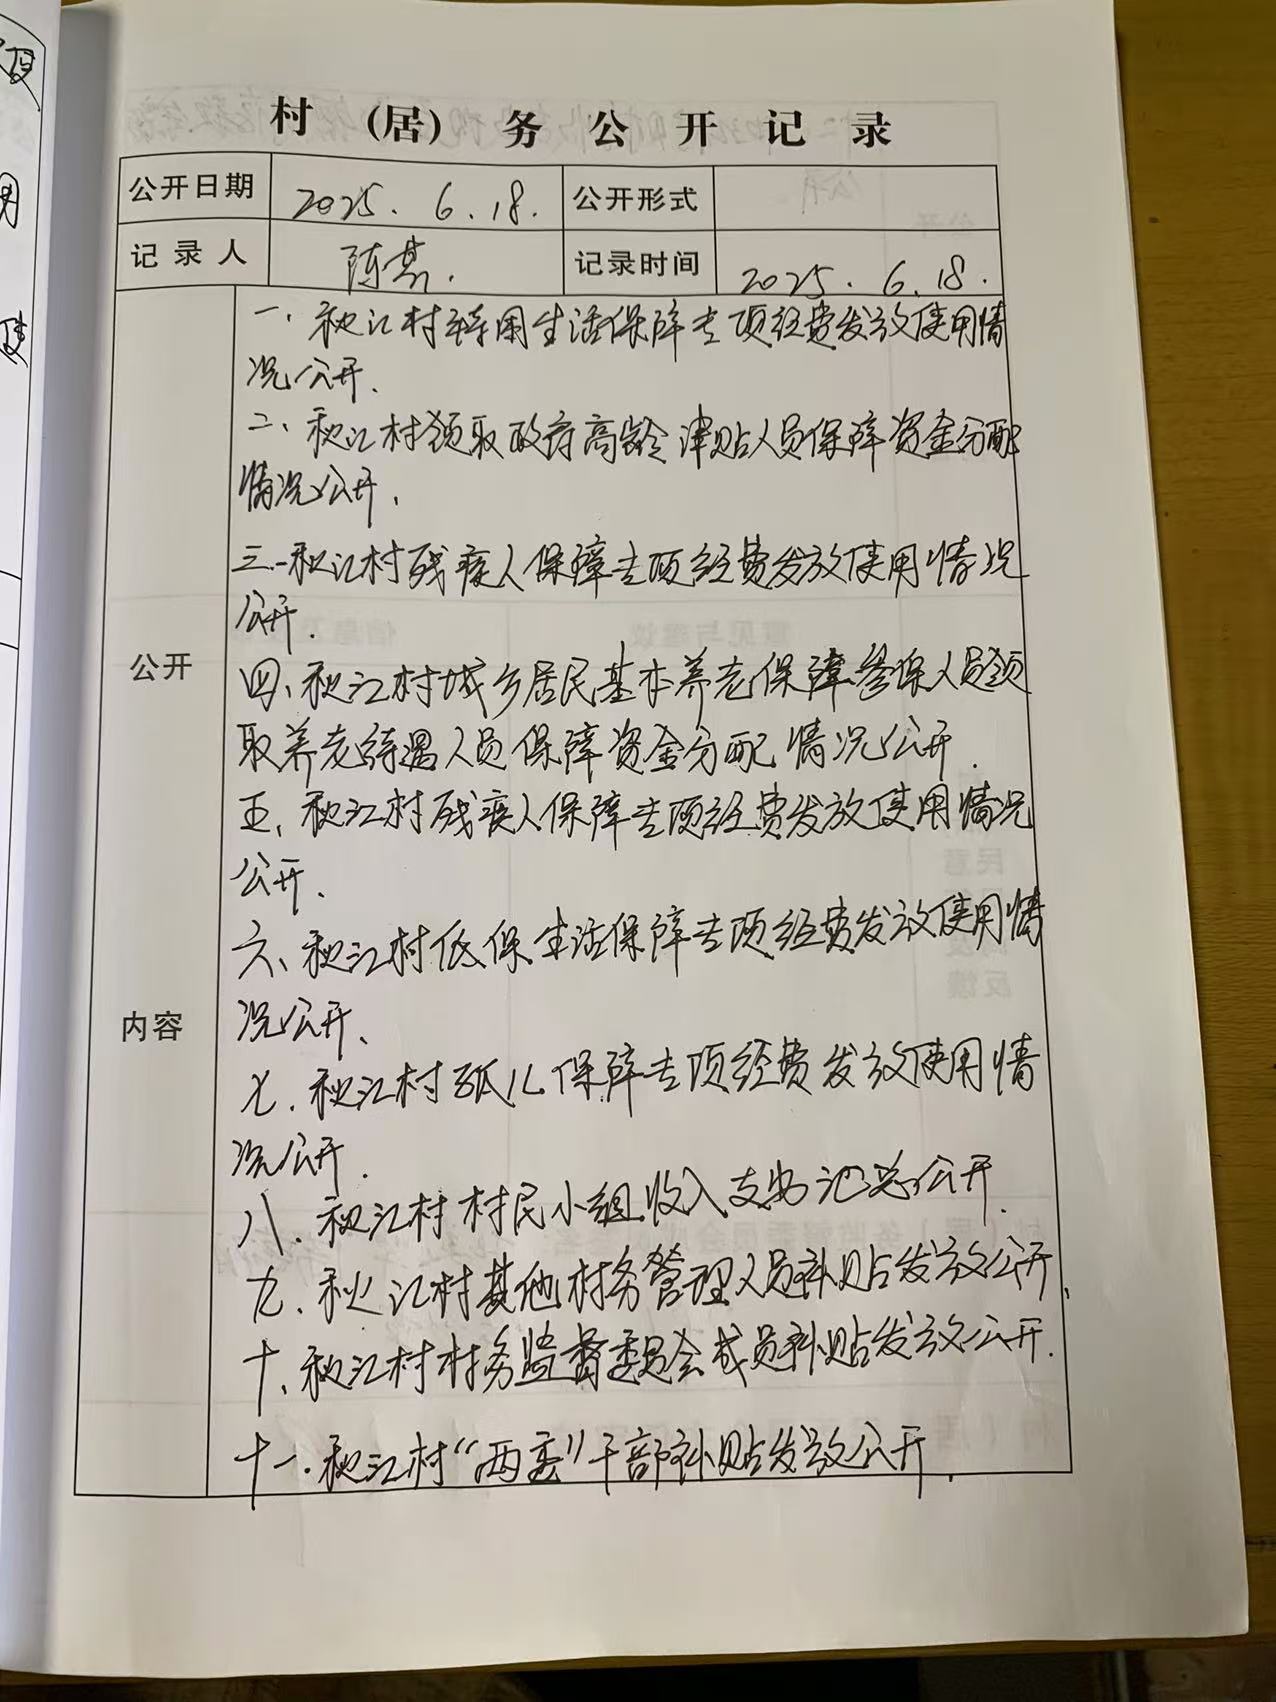 村（居）务公开记录
公开日期 2025.6.18. 公开形式
记录人 陈 记录时间 2025.6.18.
公开内容
一、秋江村特困生活保障专项经费发放使用情
况公开.
二、秋江村领取政府高龄津贴人员保障资金分配
情况公开.
三.秋江村残疾人保障专项经费发放使用情况
公开.
四、秋江村城乡居民基本养老保障参保人员领
取养老待遇人员保障资金分配情况公开.
五、秋江村残疾人保障专项经费发放使用情况
公开.
六、秋江村低保生活保障专项经费发放使用情
况公开、
七.秋江村孤儿保障专项经费发放使用情
况公开.
八.秋江村村民小组收入支出汇总公开.
九.秋江村其他村务管理人员补贴发放公开.
十、秋江村村务监督委员会成员补贴发放公开.
十一.秋江村“两委”干部补贴发放公开.